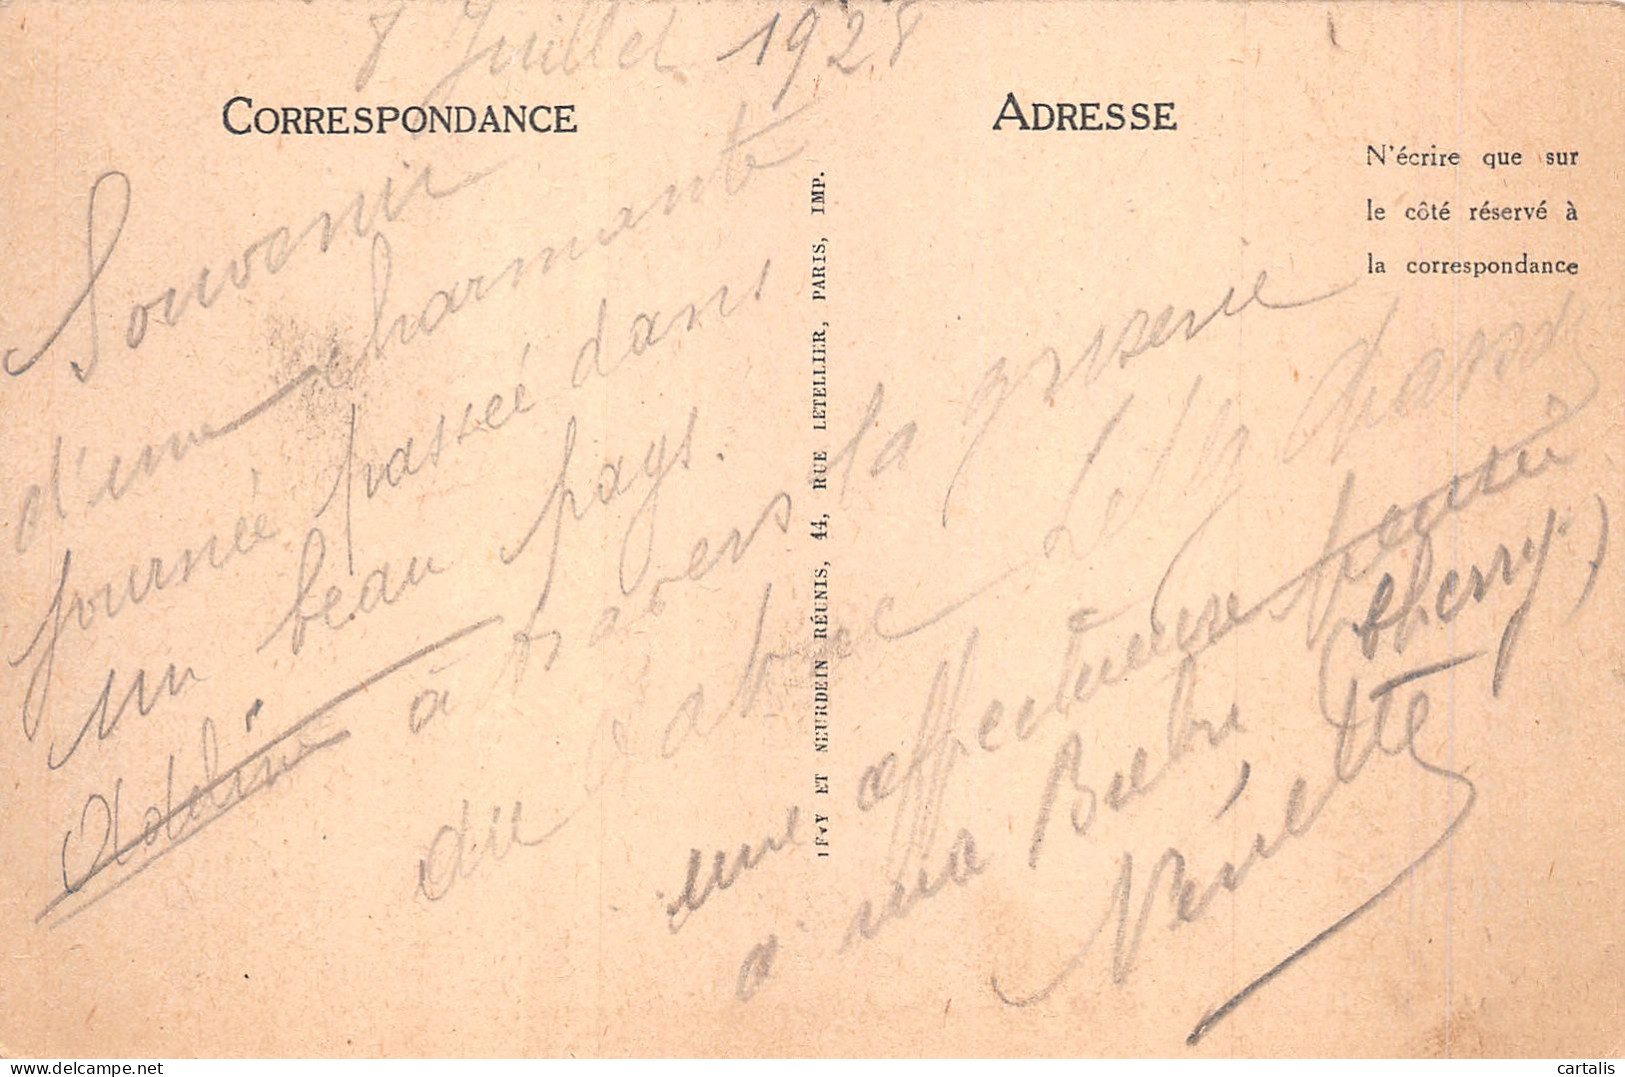 8 Juillet 1928
CORRESPONDANCE
ADRESSE
N'écrire que sur
le côté réservé à
la correspondance
Souvenir
d'une charmante
journée passée dans
un beau pays.
Adeline
à travers la griserie
du
une affectueuse pensée
à ma Bébé (cherry)
Vévette
LEVY ET NEURDEIN RÉUNIS, 44, RUE LETELLIER, PARIS, IMP.
cartalis